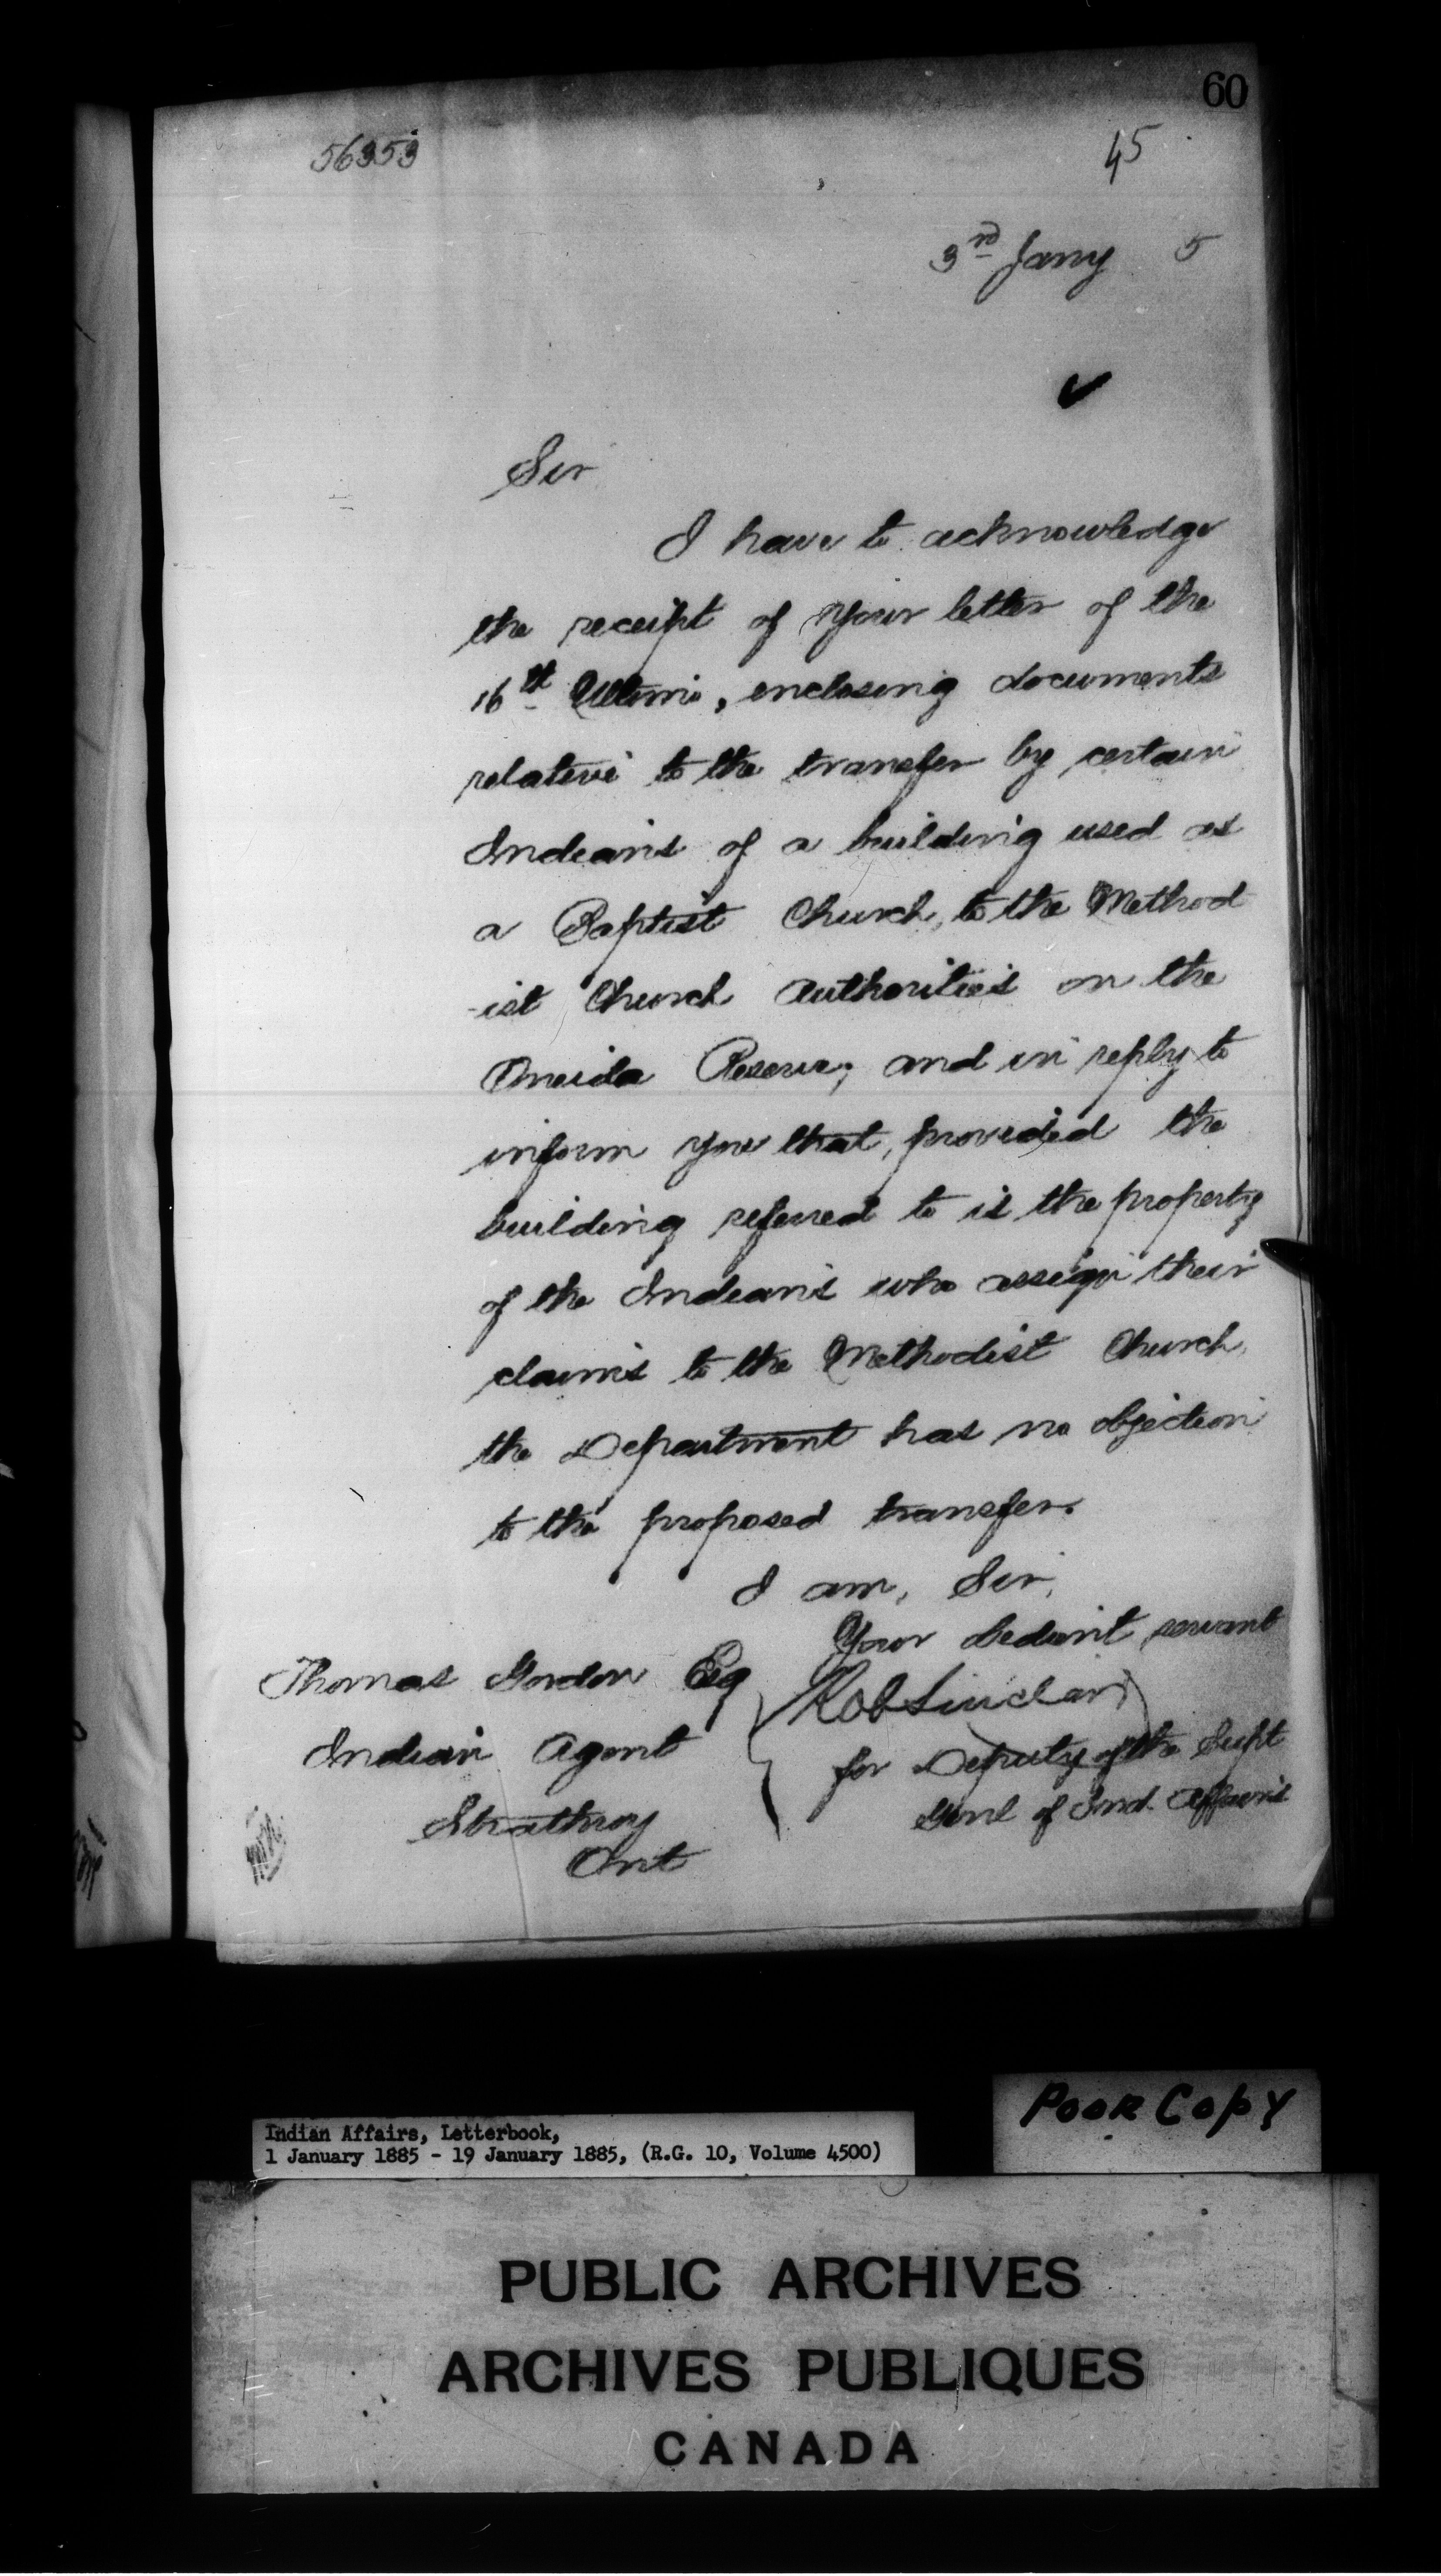 60
56353
45
3rd Jany 5
Sir
I have to acknowledge
the receipt of your letter of the
16th Ultimo, enclosing documents
relative to the transfer by certain
Indians of a building used as
a Baptist Church, to the Method
-ist Church Authorities on the
Oneida Reserve; and in reply to
inform you that, provided the
building referred to is the property
of the Indians who assign their
claims to the Methodist Church,
the Department has no objection
to the proposed transfer.
I am, Sir,
Your obedient servant
Thomas Gordon Esq
Rob Sinclair
Indian Agent
for Deputy of the Supt
Strathroy
Genl of Ind. Affairs
Ont
POOR COPY
Indian Affairs, Letterbook,
1 January 1885 - 19 January 1885, (R.G. 10, Volume 4500)
PUBLIC ARCHIVES
ARCHIVES PUBLIQUES
CANADA